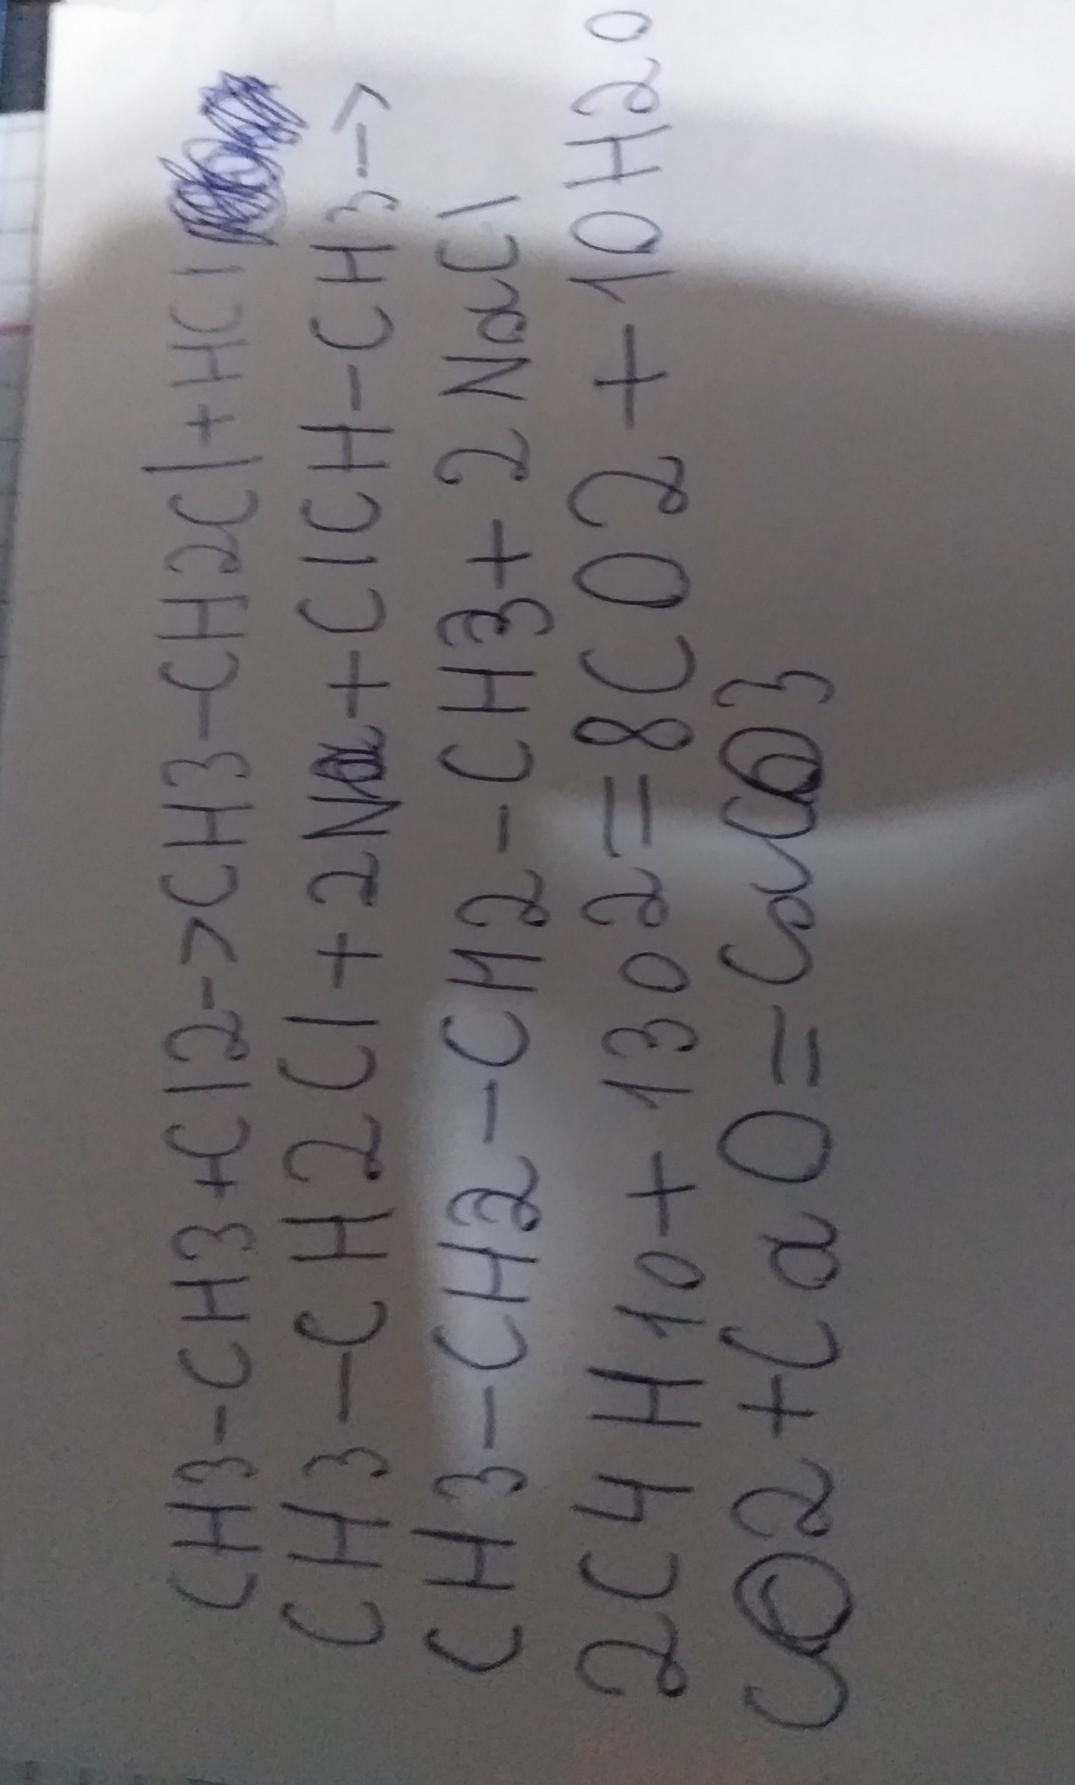 CH3-CH3+Cl2->CH3-CH2Cl+HCl
CH3-CH2Cl+2Na+ClCH-CH3->
CH3-CH2-CH2-CH3+2NaCl
2C4H10+13O2=8CO2+10H2O
CO2+CaO=CaCO3